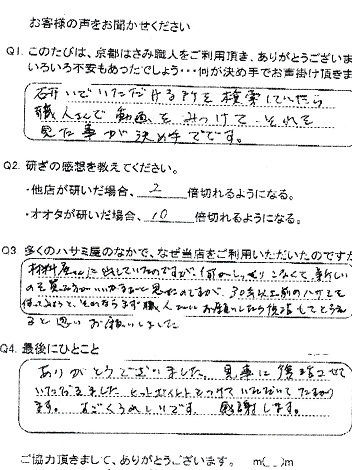 お客様の声をお聞かせください
Q1. このたびは、京都はさみ職人をご利用頂き、ありがとうございま
いろいろ不安もあったでしょう・・・何が決め手でお声掛け頂きま
研いでいただける所を検索していたら
職人さんで動画をみつけて それを
見た事が決め手でです。
Q2. 研ぎの感想を教えてください。
・他店が研いだ場合、 2 倍切れるようになる。
・オオタが研いだ場合、 10 倍切れるようになる。
Q3 多くのハサミ屋のなかで、なぜ当店をご利用いただいたのですか
材料屋さんに出していたのですが、 しっくりこなくて、新しい
のを買った方がいいかなーと思ったのですが、30年以上前のハサミを
職人さんにお願いしたら復活してもらえ
ると思いお願いしました
Q4. 最後にひとこと
ありがとうございました。見事に復活させて
いただきました
ます。すごくうれしいです。感謝します。
ご協力頂きまして、ありがとうございます。 m(_ _)m